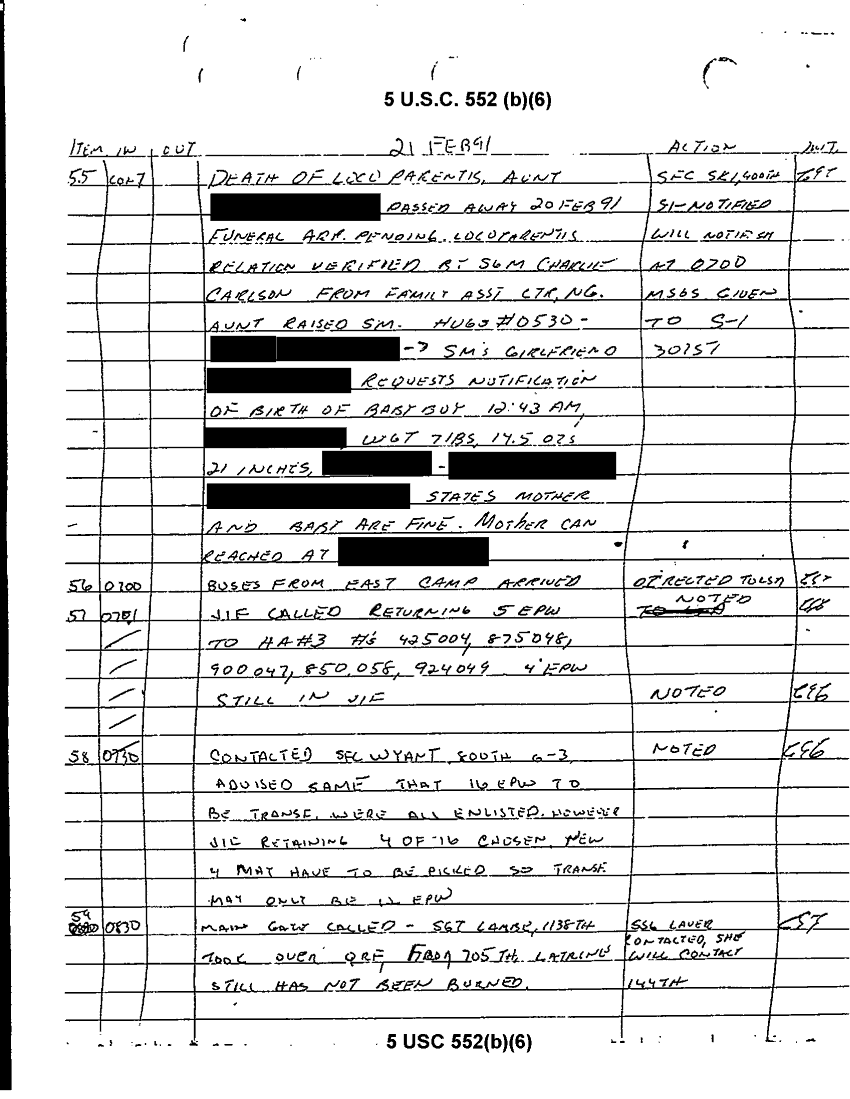 5 U.S.C. 552 (b)(6)
ITEM IN OUT 21 FEB91 ACTION INIT.
55 CONT DEATH OF LOCO PARENTIS, AUNT
PASSED AWAY 20 FEB 91 S1-NOTIFIED
FUNERAL ARR. PENDING. LOCOPARENTIS WILL NOTIF SM
RELATION VERIFIED BY SGM CHARLIE AT 0700
CARLSON FROM FAMILY ASST CTR, NG. MSGS GIVEN
AUNT RAISED SM. #0530- TO S-1
-> SM'S GIRLFRIEND
REQUESTS NOTIFICATION
OF BIRTH OF BABY BOY 12:43 AM,
WGT 7 lBS, 14.5 OZS
21 INCHES, -
STATES MOTHER
AND BABY ARE FINE. MOTHER CAN
REACHED AT
56 0700 BUSES FROM EAST CAMP ARRIVED
57 0701 JIF CALLED RETURNING 5 EPW NOTED
TO HA#3 #'s 425004, 875048,
900047, 850058, 924049 4 EPW
STILL IN JIF NOTED
58 0730 CONTACTED SFC WYANT, 800TH G-3, NOTED
ADVISED SAME THAT 16 EPW TO
BE TRANSF. WERE ALL ENLISTED. HOWEVER
JIF RETAINING 4 OF 16 CHOSEN, NEW
4 MAY HAVE TO BE PICKED SO TRANSF.
MAY ONLY BE 12 EPW
59 0830 MAIN GATE CALLED - SGT LAMBE, 1138TH SSG LAVER
TOOK OVER QRF, FROM 705TH LATRINE CONTACTED, SHE WILL CONTACT
STILL HAS NOT BEEN BURNED. 144TH
5 USC 552(b)(6)